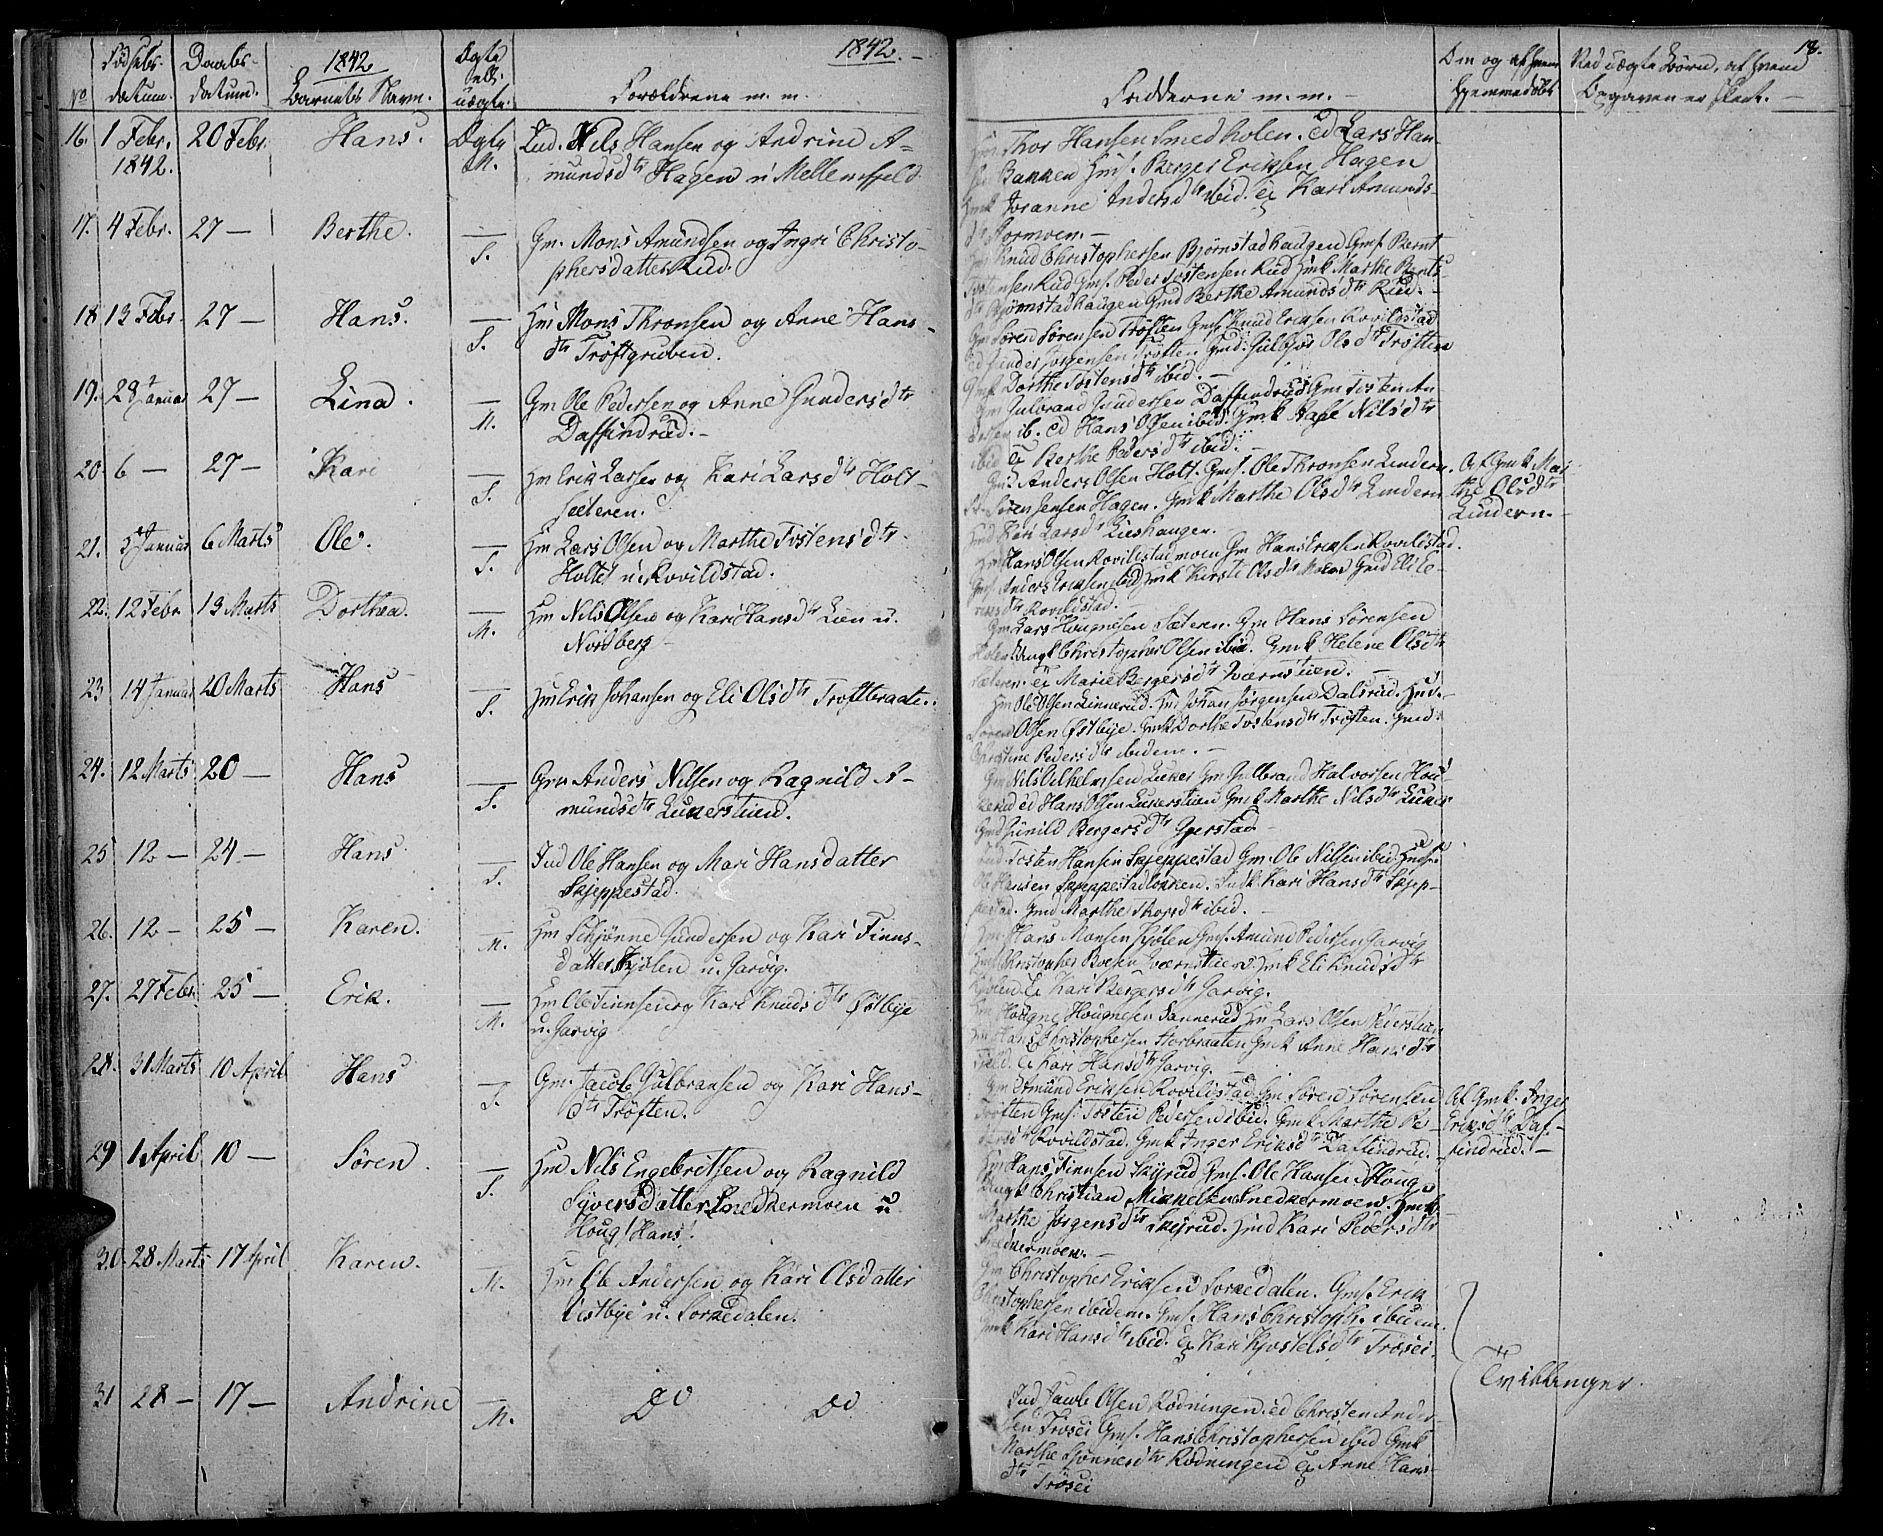 1842.
18.
No
Fødsels-
datum.
Daabs-
datum.
1842
Barnets Navn.
Ægte
ell.
uægte.
Forældrene m. m.
Fadderne m. m.
Om og af hvem
hjemmedøbt
Ved uægte Børn, af hvem
Opgaven er skeet.
16. 1 Febr. 20 Febr. Hans. Ægte
1842. M.
Ind. Nils Hansen og Andrine A-
mundsdtr Hagen u Mellemfjeld
Thor Hansen Smedholen. Ed Lars Han-
sen Bakken Hmf. Berger Eriksen Hagen
Hmk Joranne Andersdtr ibid. & Kari Amunds-
dtr Stormoen.
17. 4 Febr. 27 — Berthe. — S.
Gm. Mons Amundsen og Ingri Christo-
phersdatter Rud.
Knud Christophersen Bjørnstadhaugen Gmf. Bernt
Tostensen Rud Gmf. Peder Tostensen Rud Hmk Marthe Bents-
dtr Bjørnstadhaugen Gmd Berthe Amundsdtr Rud.
18 13 Febr. 27 — Hans. — S.
Hm Mons Thronsen og Anne Hans-
dtr Trøftgruben.
Gm Søren Sørensen Trøften Gmf. Knud Eriksen Rovildstad
Ed Gunder Jørgensen Trøften Gmd: Gulbjør Olsdtr Trøften
Gmk Dorthe Tostensdtr ibid. —
19. 29 Januar 27 — Lina. — M.
Gm Ole Pedersen og Anne Gundersdtr
Daffindrud. —
Gm Gulbrand Gundersen Daffindrud Gm Tosten An-
dersen ib. Ed Hans Olsen ibid. Gmk Aase Nilsdtr
ibid & Berthe Pedersdtr ibid.
20 6 — 27 — Kari — S.
Hm Erik Larsen og Kari Larsdtr Holt-
sæteren.
Gm Anders Olsen Holt. Gmf. Ole Thronsen Lindern.
Søren Jensen Hagen. Gmk Marthe Olsdtr Lindern
Gmd Kari Larsdtr Lieshaugen.
Af Gmk Mar-
the Olsdtr
Lindern. —
21. 5 Januar 6 Marts Ole. — S.
Hm Lars Olsen og Marthe Tostensdtr
Holtet u. Rovildstad.
Hm Hans Olsen Rovildstadmoen Gm Hans Eriksen Rovildstad.
Gmf. Anders Eriksen ibid Hmk Kirsti Olsdtr Moen Gmd Eli E-
riksdtr Rovildstad. —
22. 12 Febr 13 Marts Dorthea. — M.
Hm Nils Olsen og Kari Hansdtr Lien u.
Nordberg —
Gm Lars Hougnesen Sæteren. Gm Hans Sørensen
Holen Ungk Christopher Olsen ibid. Gmk Helene Olsdtr
Sæteren. & Marie Bergersdtr Kværnstuen.
23 14 Januar 20 Marts Hans — S.
Hm Erik Johansen og Eli Olsdtr Trøftbraate.
Hm Ole Olsen Linnerud. Ind Johan Jørgensen Dalsrud. Hmf.
Søren Olsen Østbye. Gmk Dorthe Tostensdtr Trøften. Gmd
Christine Pedersdtr ibidem. —
24. 12 Marts 20 — Hans — S.
Gm Anders Nilsen og Ragnild A-
mundsdtr Lukerstuen.
Gm Nils Vilhelmsen Luker Gm Gulbrand Halvorsen Hou-
kerud Ed Hans Olsen Lukerstuen Gmk Marthe Nilsdtr Luker
Gmd Gunild Bergersdtr Gjerstad
25 12 — 24 — Hans — S.
Ind Ole Hansen og Mari Hansdatter
Skjeppestad.
Ind. Tosten Hansen Skjeppestad Gm. Ole Nilsen ibid. Hmf.
Ole Hansen Skjeppestadløkken. Indk. Kari Hansdtr Skjep-
pestad. Gmd Marthe Thorsdtr ibid. —
26. 12 — 25 — Karen. — M.
Hm Schjønne Gundersen og Kari Finns-
datter Kjølen u. Garvig.
Hm. Hans Monsen Kjølen Gmf. Amund Pedersen Garvig
Hmf Christopher Boesen Kværnstuen Hmk Eli Knudsdtr
Kjølen & Kari Bergersdtr Garvig.
27. 27 Febr 25 — Erik. — M.
Hm Ole Finnsen og Kari Knudsdtr Østbye
u. Garvig
Hm Hougne Hougnesen Sannerud Hm Lars Olsen Beierstuen
Hm Hans Christophersen Storbraaten Gmk Anne Hansdtr
& Kari Hansdtr Garvig. —
28. 31 Marts 10 April Hans — S.
Gm. Jacob Gulbransen og Kari Hans-
dtr Trøften.
Gm Amund Eriksen Rovildstad Gm Søren Sørensen
Trøften Gmf. Tosten Pedersen ibid. Gmk Marthe Pe-
dersdtr Rovildstad. Gmk Inger Eriksdtr Daffindrud. —
Af Gmk Inger
Eriksdtr Daf-
findrud. —
29 1 April 10 — Søren. — S.
Hm Nils Engebritsen og Ragnild
Syversdatter Snedkermoen u
Houg (Hans).
Hm Hans Finnsen Skyrud Gmf. Ole Hansen Houg.
Ungk Christian Mikkelsen Snedkermoen. Hmk
Marthe Jørgensdtr Skyrud. Hmd Kari Pedersdtr
Snedkermoen. —
30 28 Marts 17 April Karen. — M.
Hm Ole Andersen og Kari Olsdatter
Vestbye u. Sorkedalen.
Gm Christopher Eriksen Sorkedalen. Gmf. Erik
Christophersen ibidem. Gmf. Hans Christoph. ibidem.
Gmk Kari Hansdtr ibid. & Kari Kjostelsdtr Trøsei.
Tvillinger.
31 28 — 17 — Andrine — M.
Do Do
Ind Jacob Olsen Rødningen. Ed Christen Ander-
sen Trøsei Gmf. Hans Christophersen ibid Gmk
Marthe Schønnesdtr Rødningen & Anne Hans-
dtr Trøsei